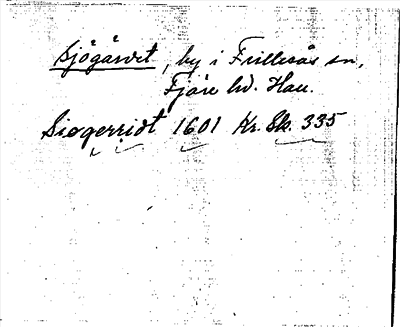 Sjögärdet, by i Frillesås sn,
Fjäre hd. Hall.
Siogerridt 1601 Kr. Sk. 335